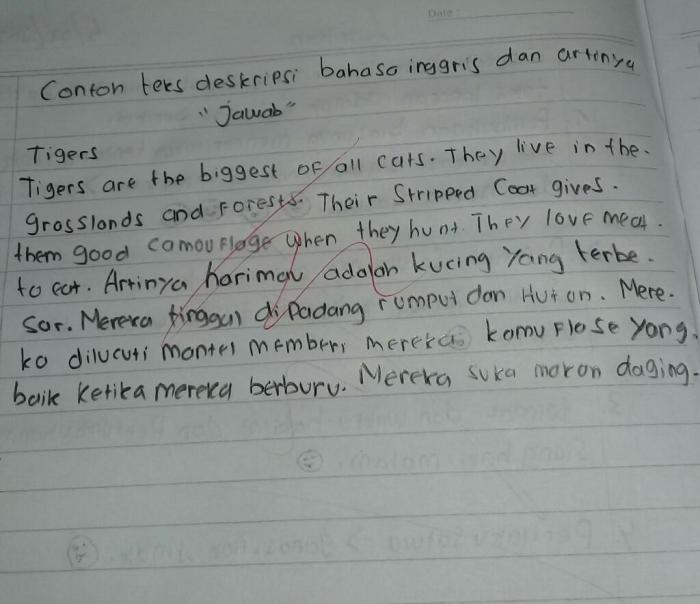 Date:
Conton teks deskripsi bahasa inggris dan artinya
"jawab"
Tigers
Tigers are the biggest of all cats. They live in the.
grasslands and Forests. Their Stripped Coat gives.
them good camouflage when they hunt. They love meat.
to eat. Artinya harimau adalah kucing yang terbe.
sar. Mereka tinggal di Padang rumput dan Hutan. Mere.
ka dilucuti mantel memberi mereka kamuflase yang.
baik ketika mereka berburu. Mereka suka makan daging.